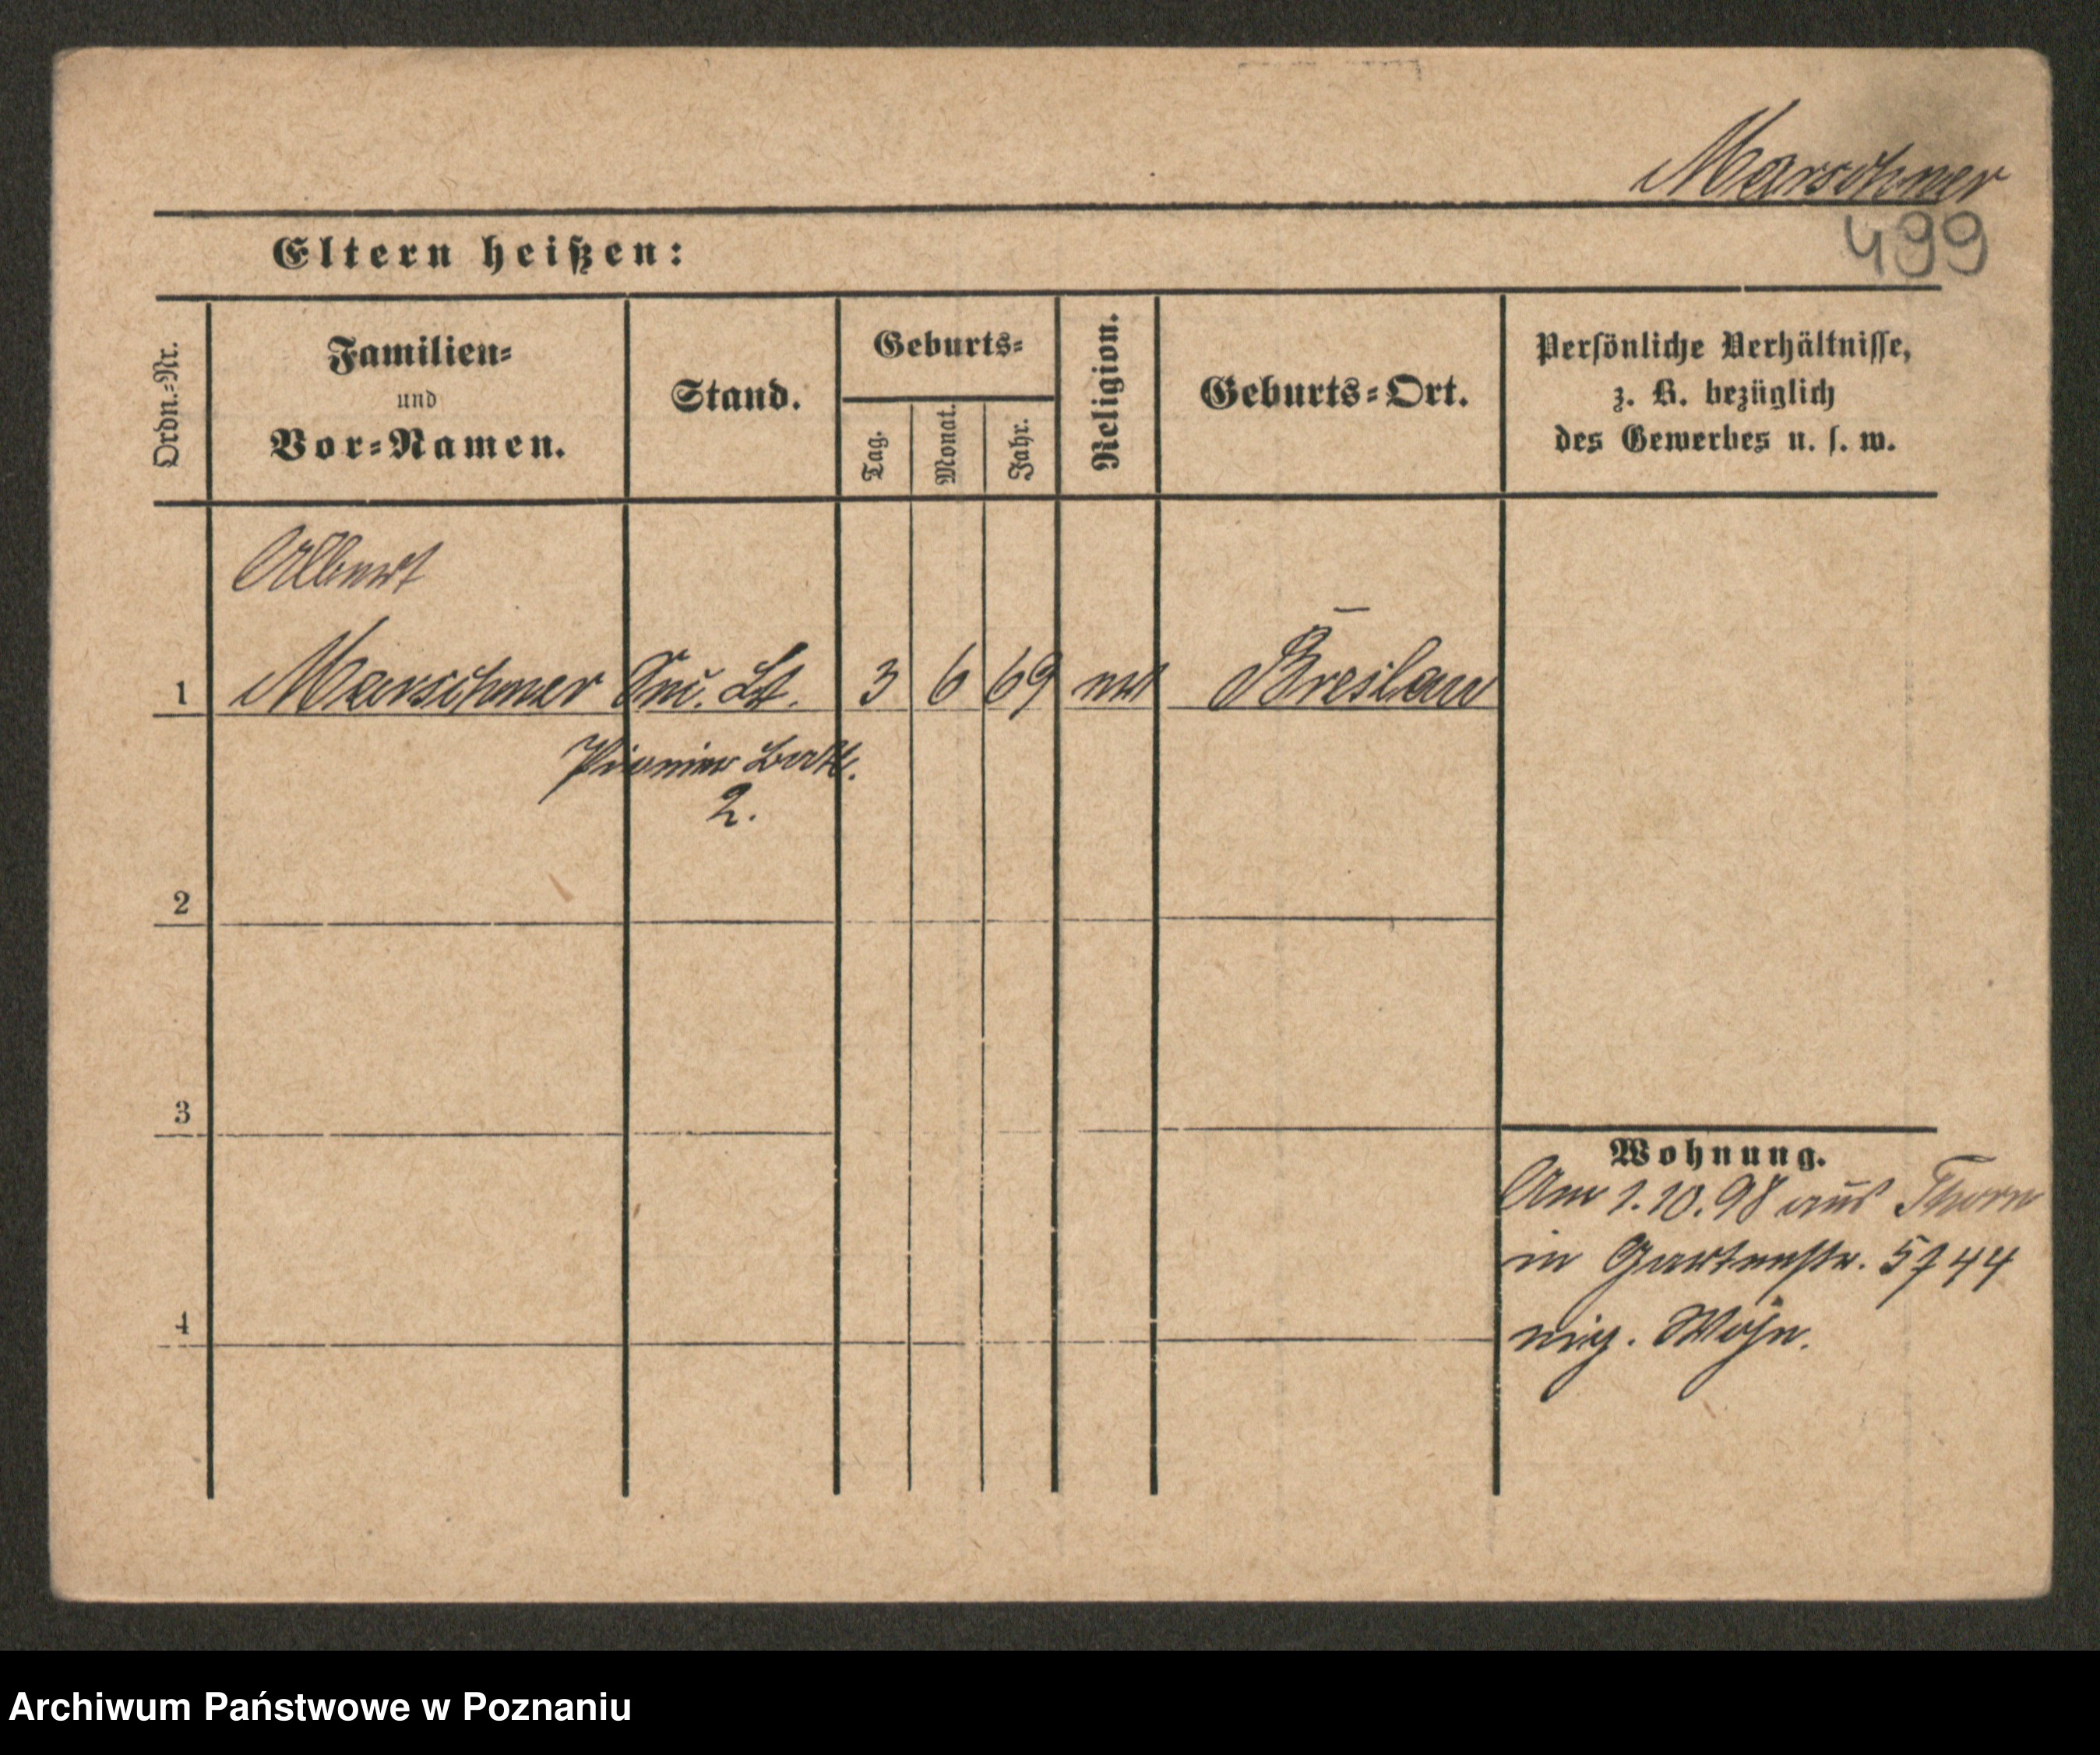 Marschner
499
Eltern heißen:
Ordn.=Nr.
Familien=
und
Vor=Namen.
Stand.
Geburts=
Tag.
Monat.
Jahr.
Religion.
Geburts=Ort.
Persönliche Verhältnisse,
z. B. bezüglich
des Gewerbes u. s. w.
Albert
1 Marschner Lt. 3 6 69 Breslau
Pionier Batl.
2.
2
3
4
Wohnung.
Am 1.10.98 aus Thorn
in Gartenstr.
eig. Wohn.
Archiwum Państwowe w Poznaniu